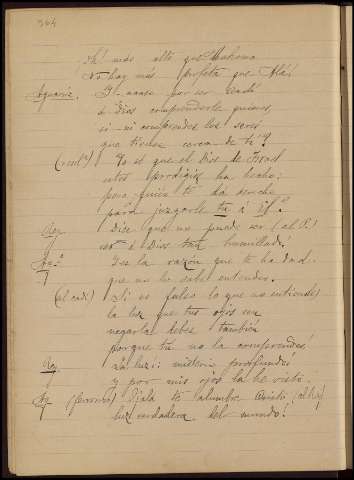 304
más alto que Mahoma
No hay más profeta que Alá!
Y acaso por ser cadí
á Dios comprenderle quieres,
si ni comprendes los seres
que tienes cerca de ti?
Yo sé que el Dios de Israel
estos prodigios ha hecho;
pero quién te da derecho
para juzgarle tu á Él?
Dice que no puede ser (al P.)
ver á Dios tan humillado.
Esa la razón que te ha dad.
que no lo sabe entender.
(al cadí) Si es falso lo que no entiendes
la luz que tus ojos ven
negarla debes también
porque tú no la comprendes!
Rey. La luz!: misterio profundo!
y por mis ojos la he visto.
(fervoroso) Ojalá te alumbre Cristo,
luz verdadera del mundo!